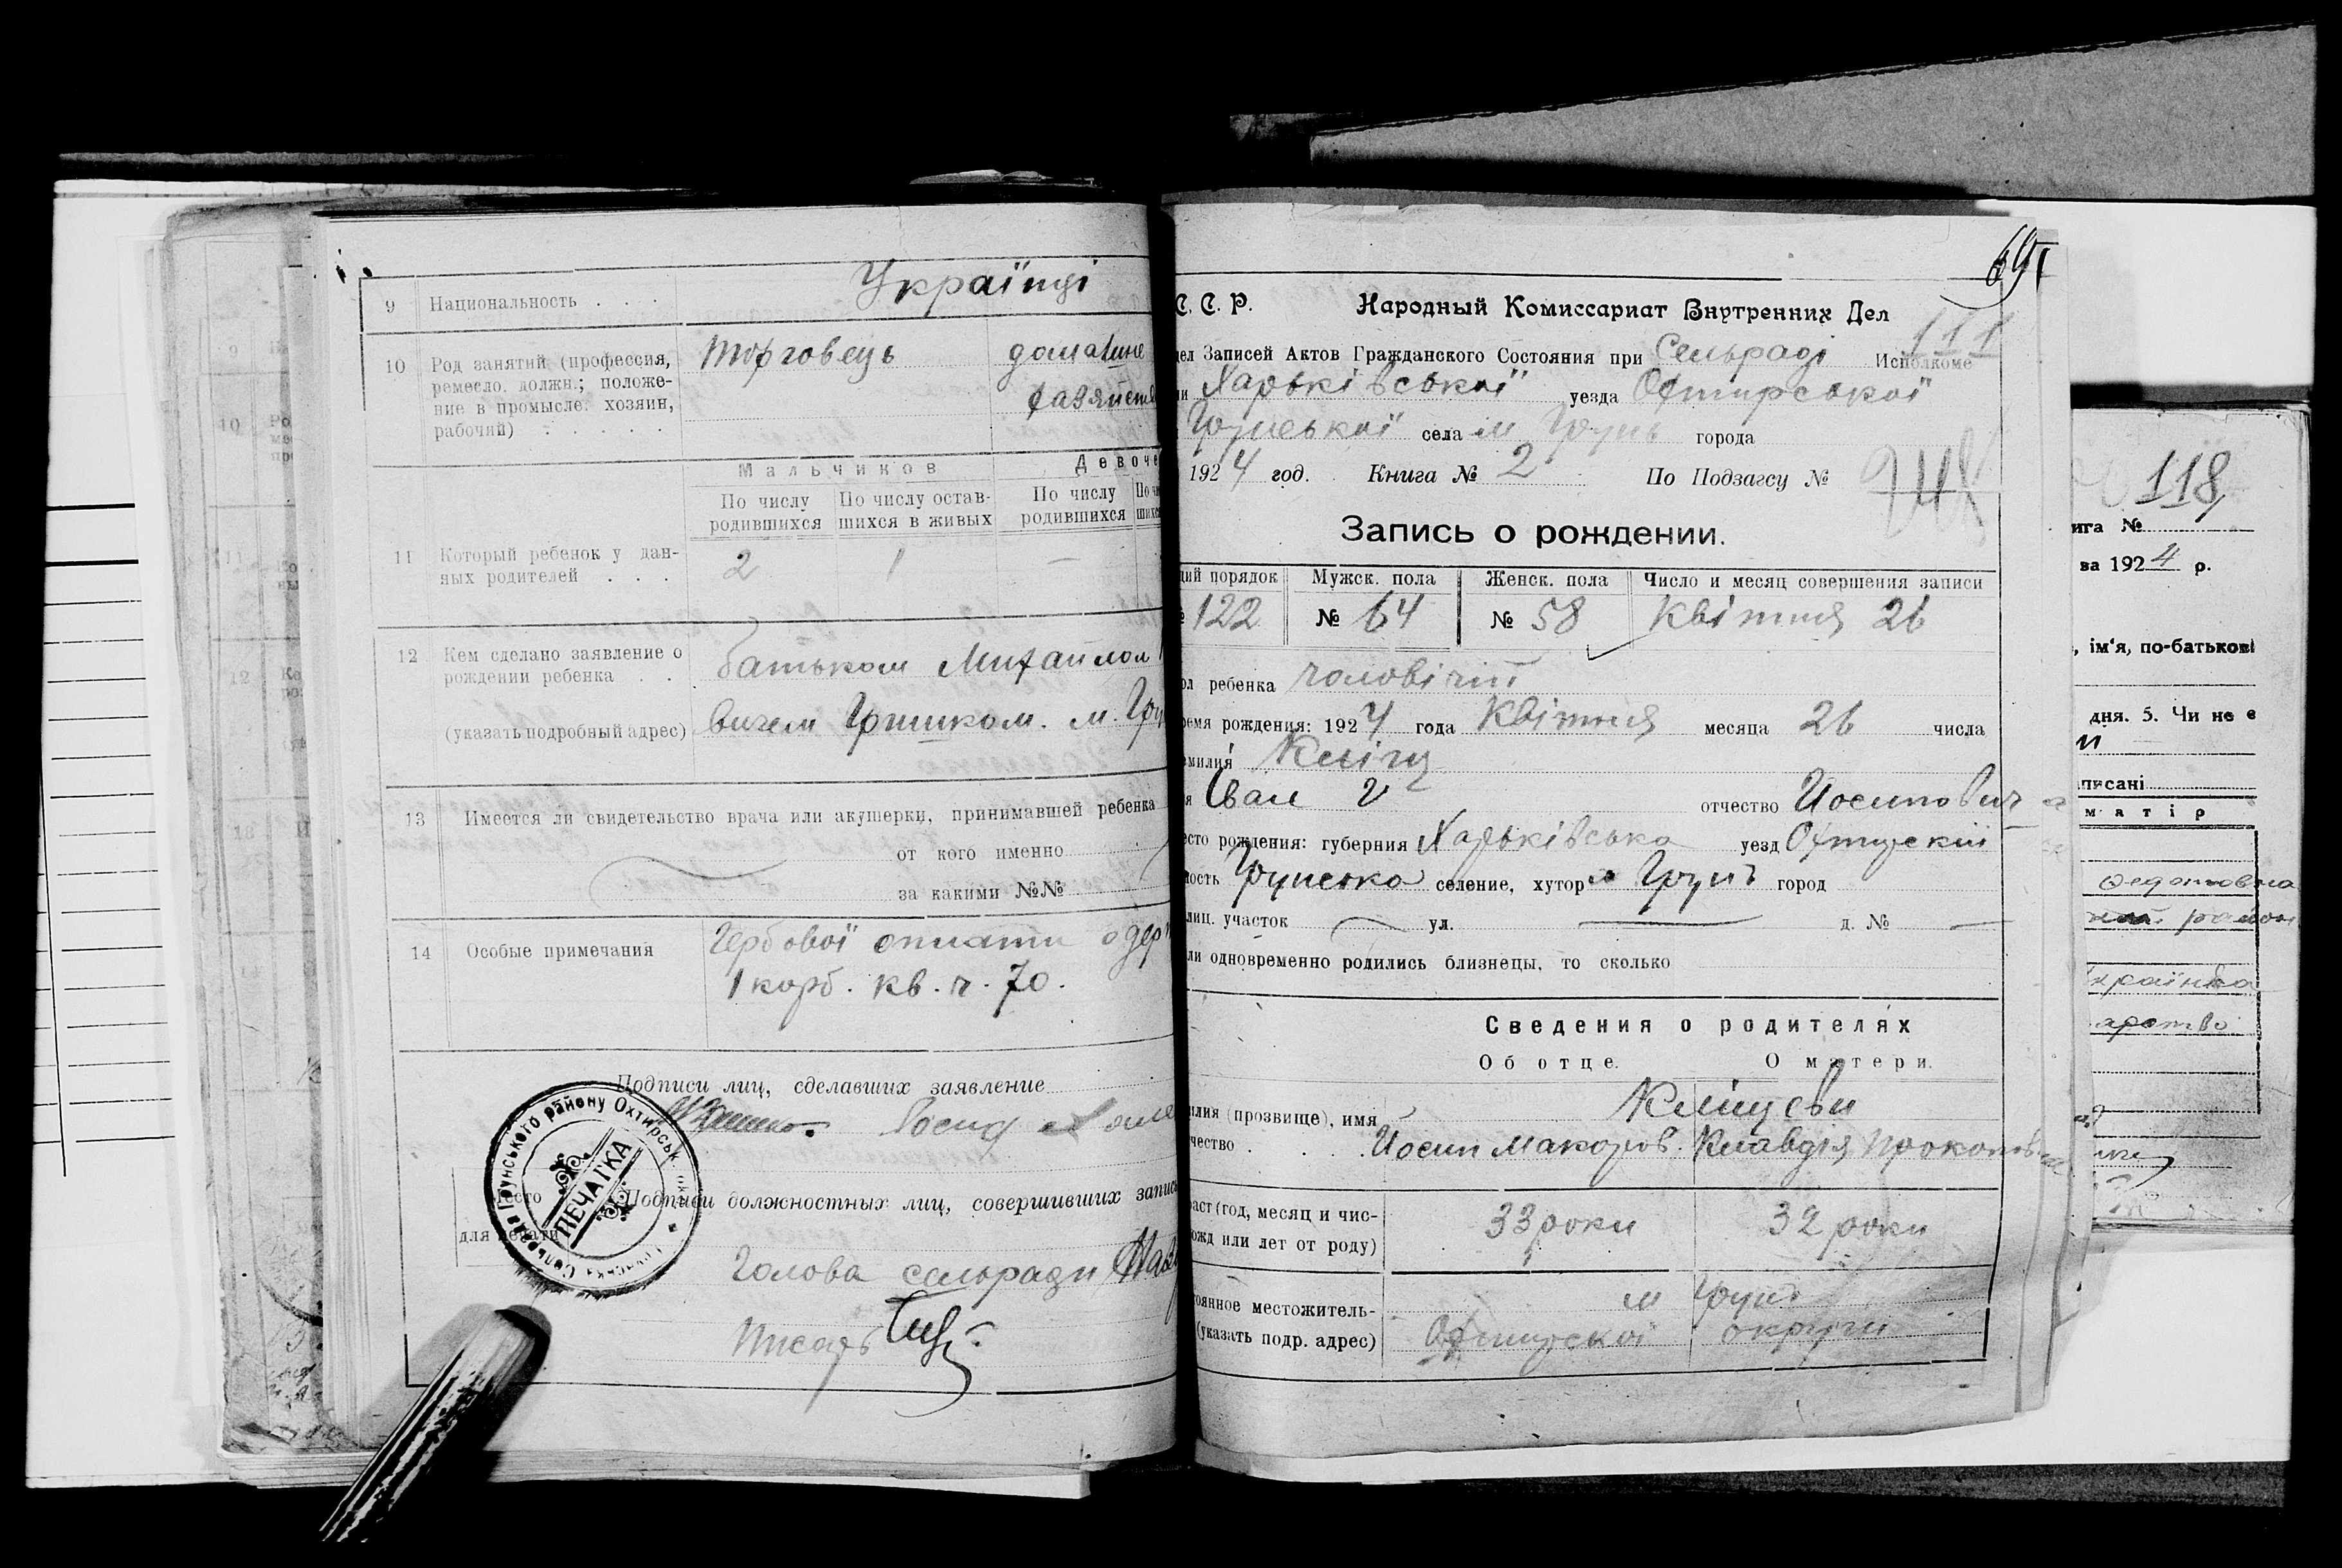 9 Национальность . . .
Українці
10 Род занятий (профессия,
ремесло, должн.; положе-
ние в промысле: хозяин,
рабочий) . . . . .
торговець
домашнє
хазяйств
Мальчиков
Девоче
По числу
родившихся
По числу остав-
шихся в живых
По числу
родившихся
11 Который ребенок у дан-
ных родителей . . .
2 1 —
12 Кем сделано заявление о
рождении ребенка . .
(указать подробный адрес)
батьком Михайлом
вичем Гришком. м. Гру
13 Имеется ли свидетельство врача или акушерки, принимавшей ребенка
от кого именно
за какими №№
14 Особые примечания
Гербової оплати одер
1 карб. кв. ч. 70.
Подписи лиц, сделавших заявление
Место
для печати
Сельрада Грунського району Охтирськ.
ПЕЧАТКА
Подписи должностных лиц, совершивших запись
Голова сельради
Писарь
69
111
С. С. Р. Народный Комиссариат Внутренних Дел
дел Записей Актов Гражданского Состояния при Сельраді Исполкоме
ии Харьківської уезда Охтирської
Грунської села м Грунь города
1924 год. Книга № 2 По Подзагсу №
Запись о рождении.
щий порядок Мужск. пола Женск. пола Число и месяц совершения записи
№ 122 № 64 № 58 Квітня 26
ол ребенка чоловічий
ремя рождения: 1924 года Квітня месяца 26 числа
амилия Кліщ
я Іван отчество Йосипович
есто рождения: губерния Харьківська уезд Охтирський
ность Грунська селение, хутор м Грунь город
лиц. участок — ул. — д. № —
ли одновременно родились близнецы, то сколько
Сведения о родителях
Об отце. О матери.
илия (прозвище), имя
чество . . . .
Кліщеви
Йосип Макаров. Клавдія Прокопівна
аст (год, месяц и чис-
ожд или лет от роду)
33 роки 32 роки
оянное местожитель-
(указать подр. адрес)
м Грунь
Охтирської округи
118
ига №
ва 1924 р.
, ім‘я, по-батькові
дня. 5. Чи не є
писані
матір
Федотовна
район
Українка